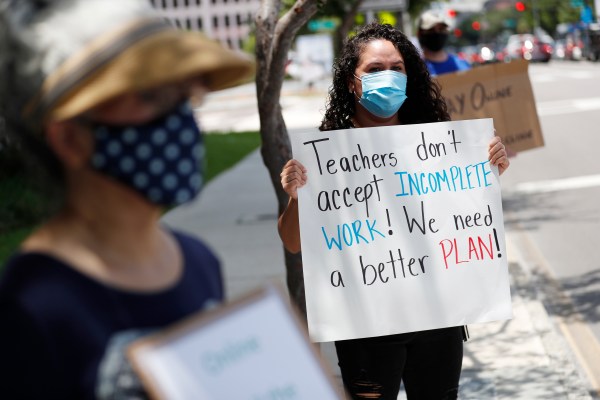 Teachers don't
accept INCOMPLETE
WORK! We need
a better PLAN!
Online